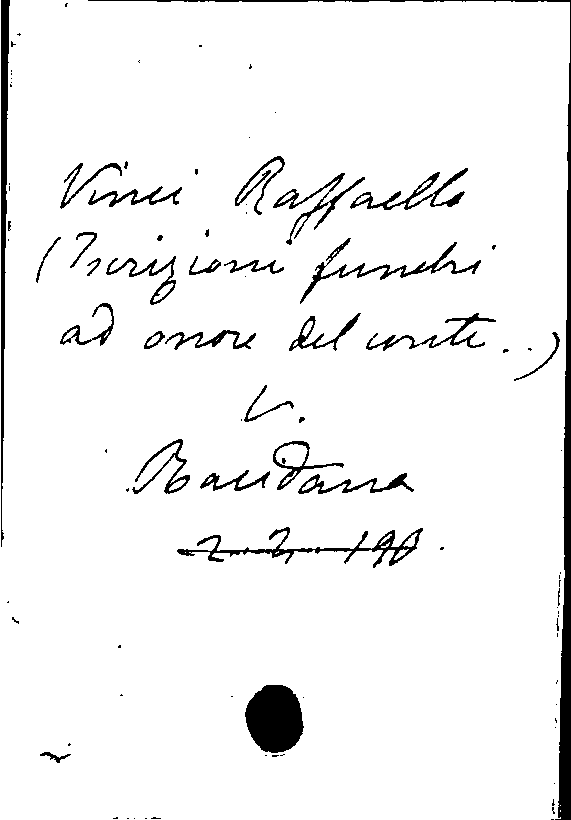 Vinci Raffaello
(Iscrizioni funebri
ad onore del conte..)
V.
Baudana
2. 2. 190